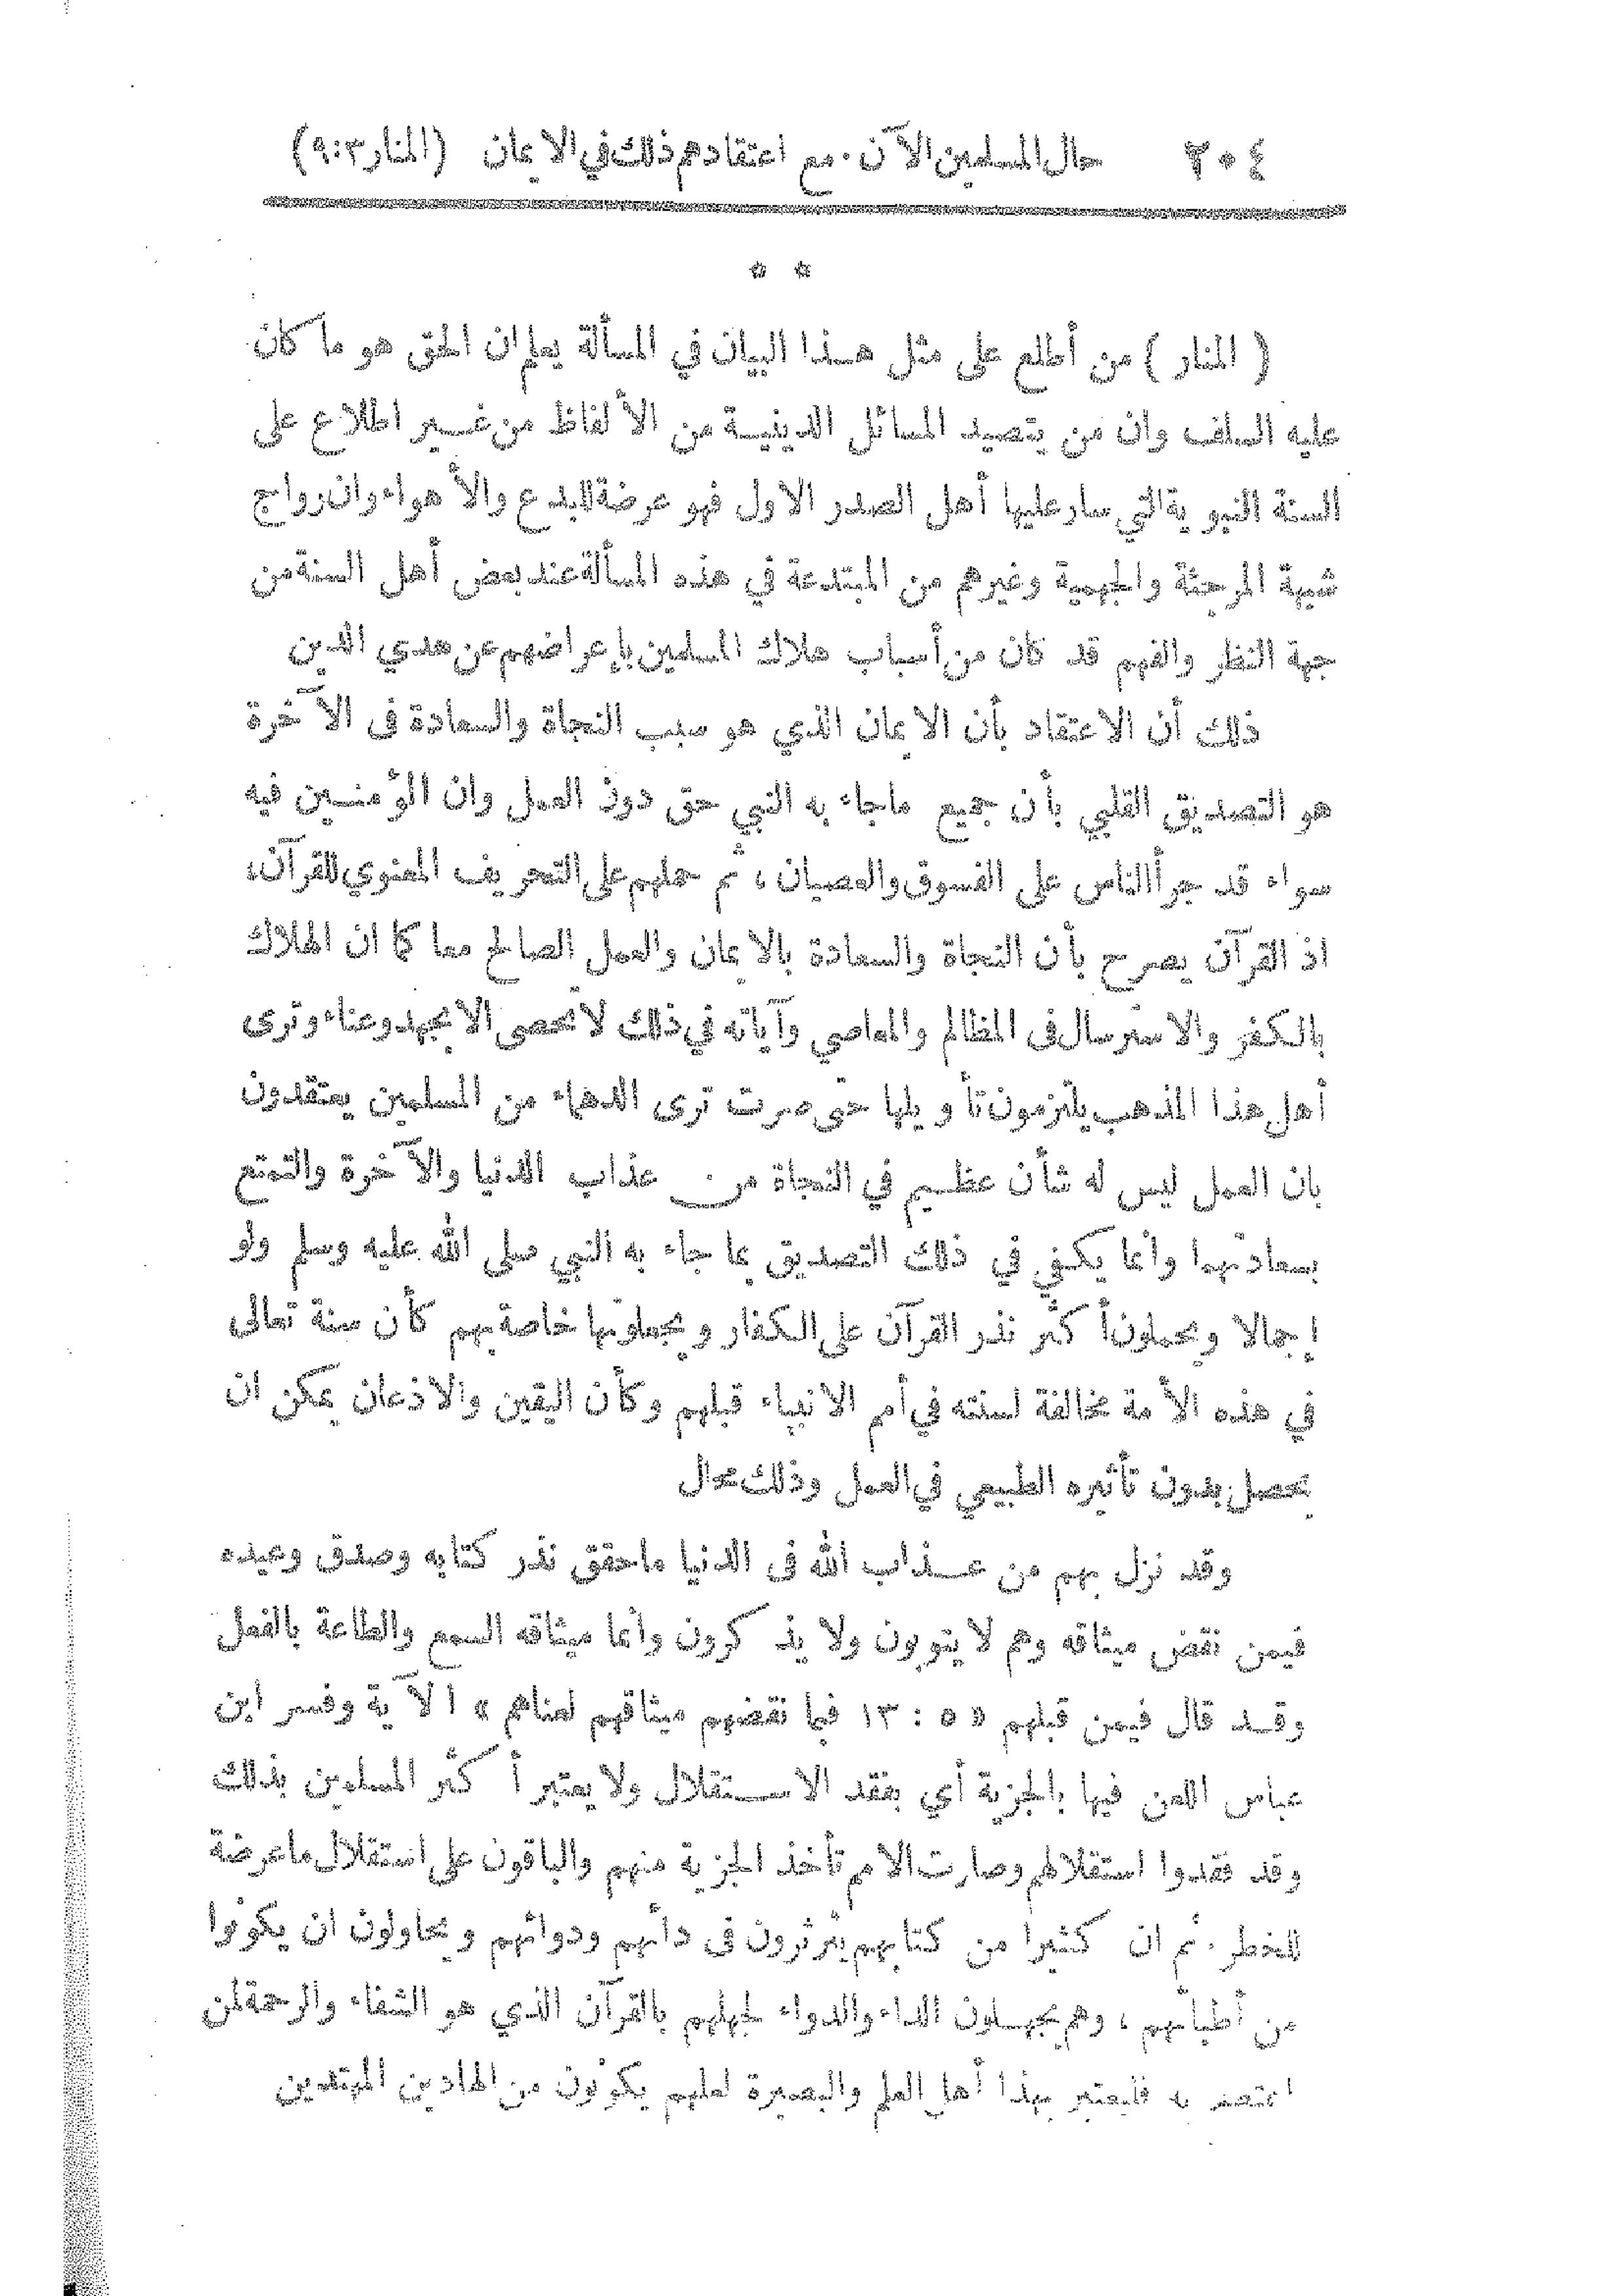 ٢٠٤ حال المسلمين الآن. مع اعتقادهم ذلك في الايمان (المنار ٣:٩)
* *
( المنار ) من أطلع على مثل هـذا البيان في المسألة يعلم ان الحق هو ما كان
عليه السلف وان من يتصيد المسائل الدينيـة من الألفاظ من غـير اطلاع على
السنة النبوية التي سار عليها أهل الصدر الاول فهو عرضة للبدع والأهواء وان رواج
شبهة المرجئة والجهمية وغيرهم من المبتدعة في هذه المسألة عند بعض أهل السنة من
جهة النظر والفهم قد كان من أسباب هلاك المسلمين بإعراضهم عن هدي الدين
ذلك أن الاعتقاد بأن الايمان الذي هو سبب النجاة والسعادة فى الآخرة
هو التصديق القلبي بأن جميع ماجاء به النبي حق دون العمل وان المؤمنـين فيه
سواء قد جرأ الناس على الفسوق والعصيان ، ثم حملهم على التحريف المعنوي للقرآن،
اذ القرآن يصرح بأن النجاة والسعادة بالايمان والعمل الصالح معا كما ان الهلاك
بالكفر والاسترسال فى المظالم والمعاصي وآياته في ذلك لا تحصى الا بجهد وعناء وترى
أهل هذا المذهب يلتزمون تأويلها حتى صرت ترى الدهماء من المسلمين يعتقدون
بان العمل ليس له شأن عظـيم في النجاة من عذاب الدنيا والآخرة والتمتع
بسعادتهما وانما يكفي في ذلك التصديق بما جاء به النبي صلى الله عليه وسلم ولو
إجمالا ويحملون أكثر نذر القرآن على الكفار ويجعلونها خاصة بهم كأن سنة تعالى
في هذه الأمة مخالفة لسنته في أمم الانبياء قبلهم وكأن اليقين والاذعان يمكن ان
يحصل بدون تأثيره الطبيعي في العمل وذلك محال
وقد نزل بهم من عـذاب الله فى الدنيا ماحقق نذر كتابه وصدق وعيده
فيمن نقض ميثاقه وهم لا يتوبون ولا يذكرون وانما ميثاقه السمع والطاعة بالفعل
وقـد قال فيمن قبلهم « ٥ : ١٣ فبما نقضهم ميثاقهم لعناهم » الآية وفسر ابن
عباس اللعن فيها بالجزية أي بفقد الاسـتقلال ولا يعتبر أكثر المسلمين بذلك
وقد فقدوا استقلالهم وصارت الامم تأخذ الجزية منهم والباقون على استقلال ما عرضة
للخطر . ثم ان كثيرا من كتابهم يثرثرون فى دائهم ودوائهم ويحاولون ان يكونوا
من أطبائهم ، وهم يجهـلون الداء والدواء لجهلهم بالقرآن الذي هو الشفاء والرحمة لمن
اعتصم به فليعتبر بهذا أهل العلم والبصيرة لعلهم يكونون من الهادين المهتدين